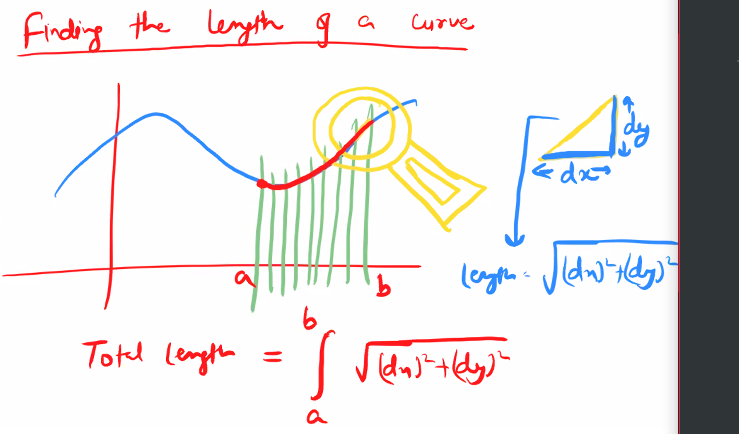 Finding the length of a curve
dy
dx
a
b
length = √(dx)²+(dy)²
b
Total length = ∫ √(dx)²+(dy)²
a